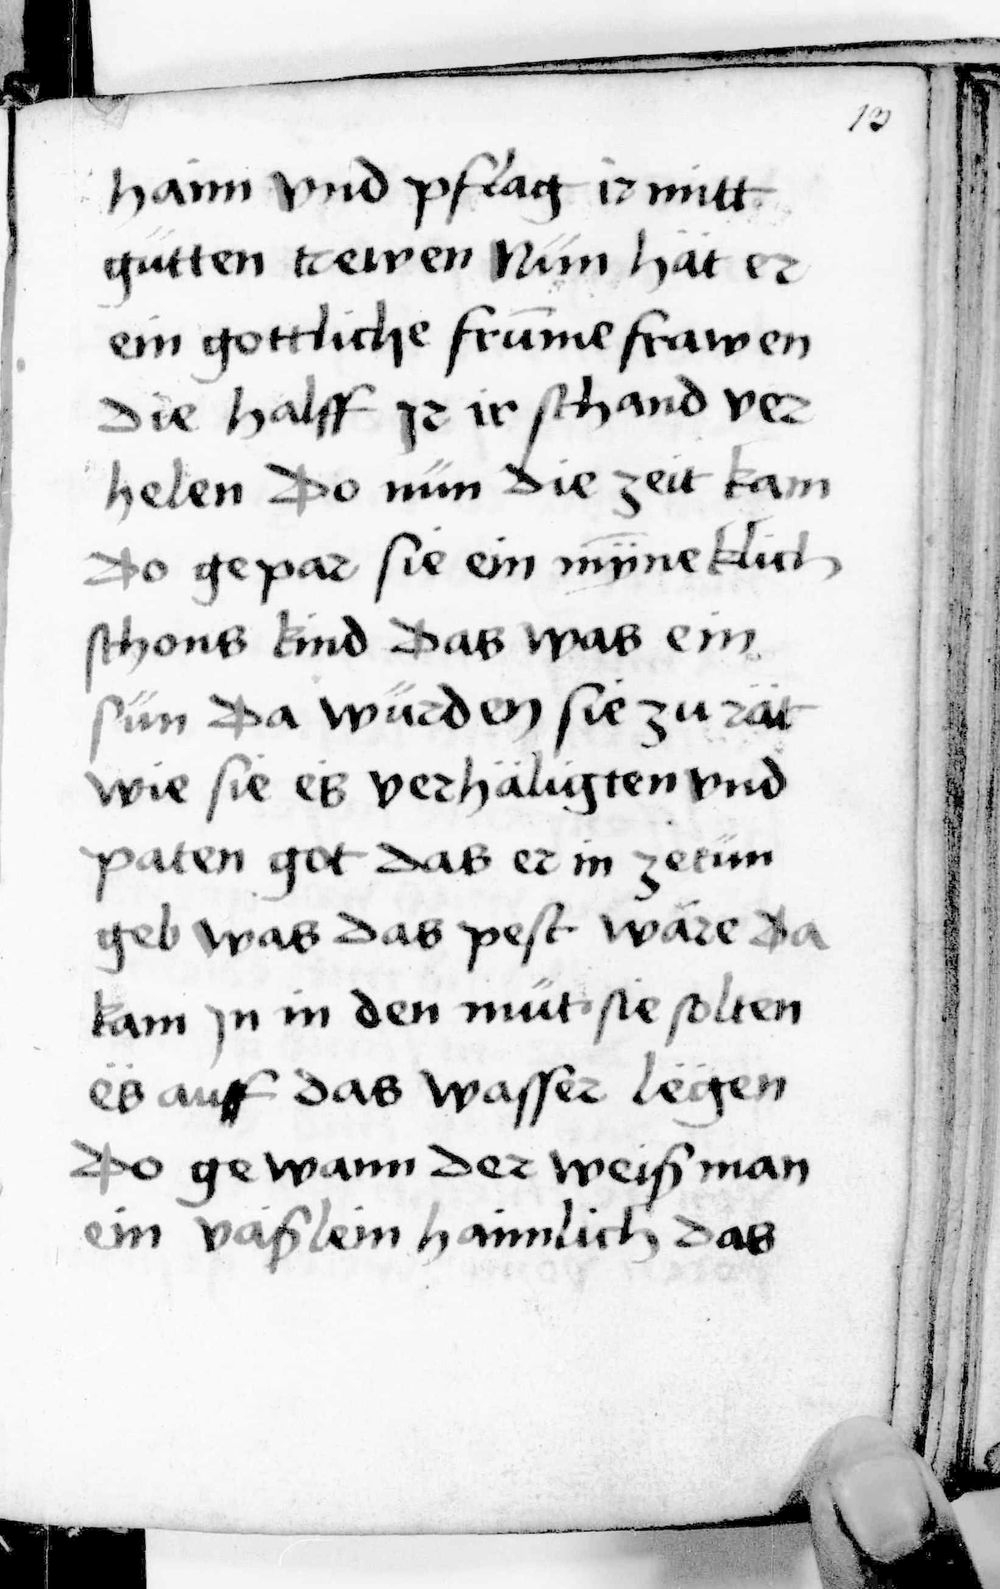 13
haim vnd pflag ir mitt
gütten trewen Nün hät er
ein gottliche frūme frawen
die halff Ir ir schand ver
helen Do nün die zeit kam
Do gepar sie ein mȳneklich
schons kind Das was ein
sün Da würden sie zu rät
wie sie es verhäligten vnd
paten got das er in zetün
geb was das pest wäre Da
kam In in den müt sie solten
ës auff das wasser legen
Do gewann der weiß man
ein väßlein haimlich das